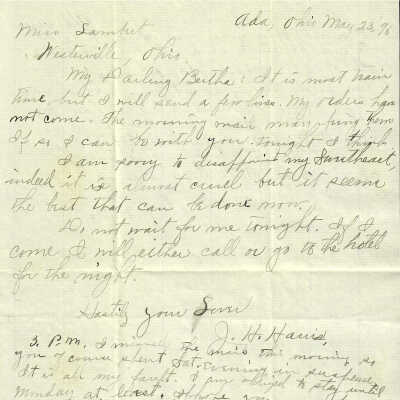 Ada, Ohio May 23, 96
Miss Lambert
Westerville, Ohio
My Darling Bertha: It is most train
time but I will send a few lines. My orders have
not come. The morning mail may bring them
If so I can be with you tonight I think
I am sorry to disappoint my Sweetheart,
indeed it is almost cruel but it seems
the best that can be done now.
Do not wait for me tonight. If I
come I will either call or go to the hotel
for the night.
Hastily your Lover
J. H. Harris,
3. P.M. I missed the mail this morning so
you of course spent Sat. evening in suspense
It is all my fault. I am obliged to stay until
Monday at least. you